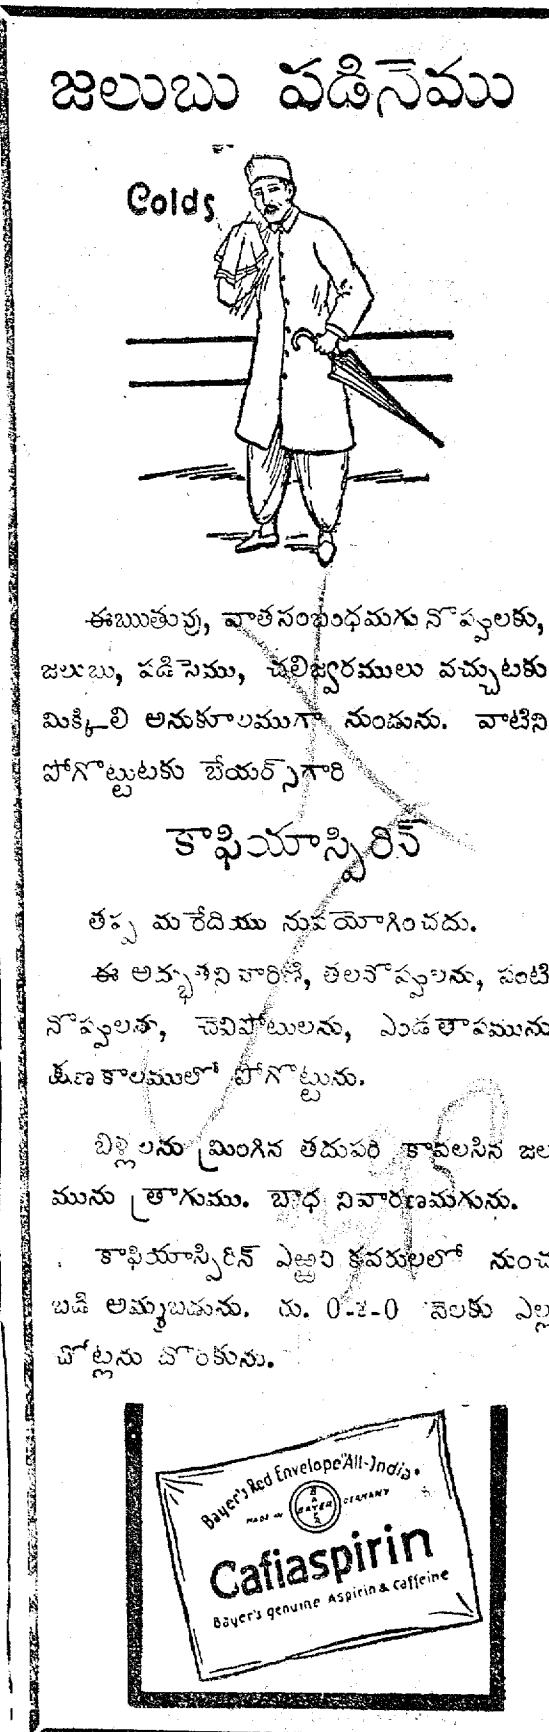 జలుబు పడిసెము
Colds
ఈఋతువు, వాతసంబంధమగు నొప్పులకు,
జలుబు, పడిసెము, చలిజ్వరములు వచ్చుటకు
మిక్కిలి అనుకూలముగా నుండును. వాటిని
పోగొట్టుటకు బేయర్స్‌గారి
కాఫియాస్పిరిన్
తప్ప మరేదియు నుపయోగించదు.
ఈ తలనొప్పులను, పంటి
నొప్పులను, చెవిపోటులను, ఎండతాపమును
క్షణకాలములో పోగొట్టును.
బిళ్లలను మ్రింగిన తదుపరి కావలసిన జల
మును త్రాగుము. బాధ నివారణమగును.
కాఫియాస్పిరిన్ ఎఱ్ఱని కవరులలో నుంచ
బడి అమ్మబడును. రు. వెలకు ఎల్ల
చోట్లను దొరకును.
Bayer's Red Envelope "All-India.
MADE IN BAYER GERMANY
Cafiaspirin
Bayer's genuine Aspirin & Caffeine